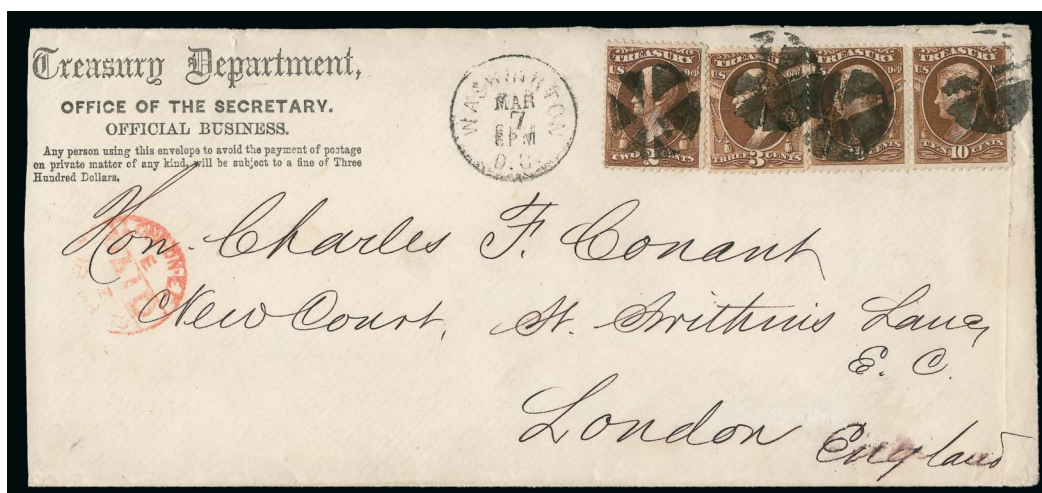 Treasury Department,
OFFICE OF THE SECRETARY.
OFFICIAL BUSINESS.
Any person using this envelope to avoid the payment of postage
on private matter of any kind, will be subject to a fine of Three
Hundred Dollars.
WASHINGTON
MAR
7
6PM
D.C.
TREASURY
U.S.
TWO 2 CENTS
TREASURY
U.S.
THREE 3 CENTS
TREASURY
TREASURY
U.S.
TEN 10 CENTS
Hon. Charles F. Conant
New Court, St. Swithins Lane,
E. C.
London England